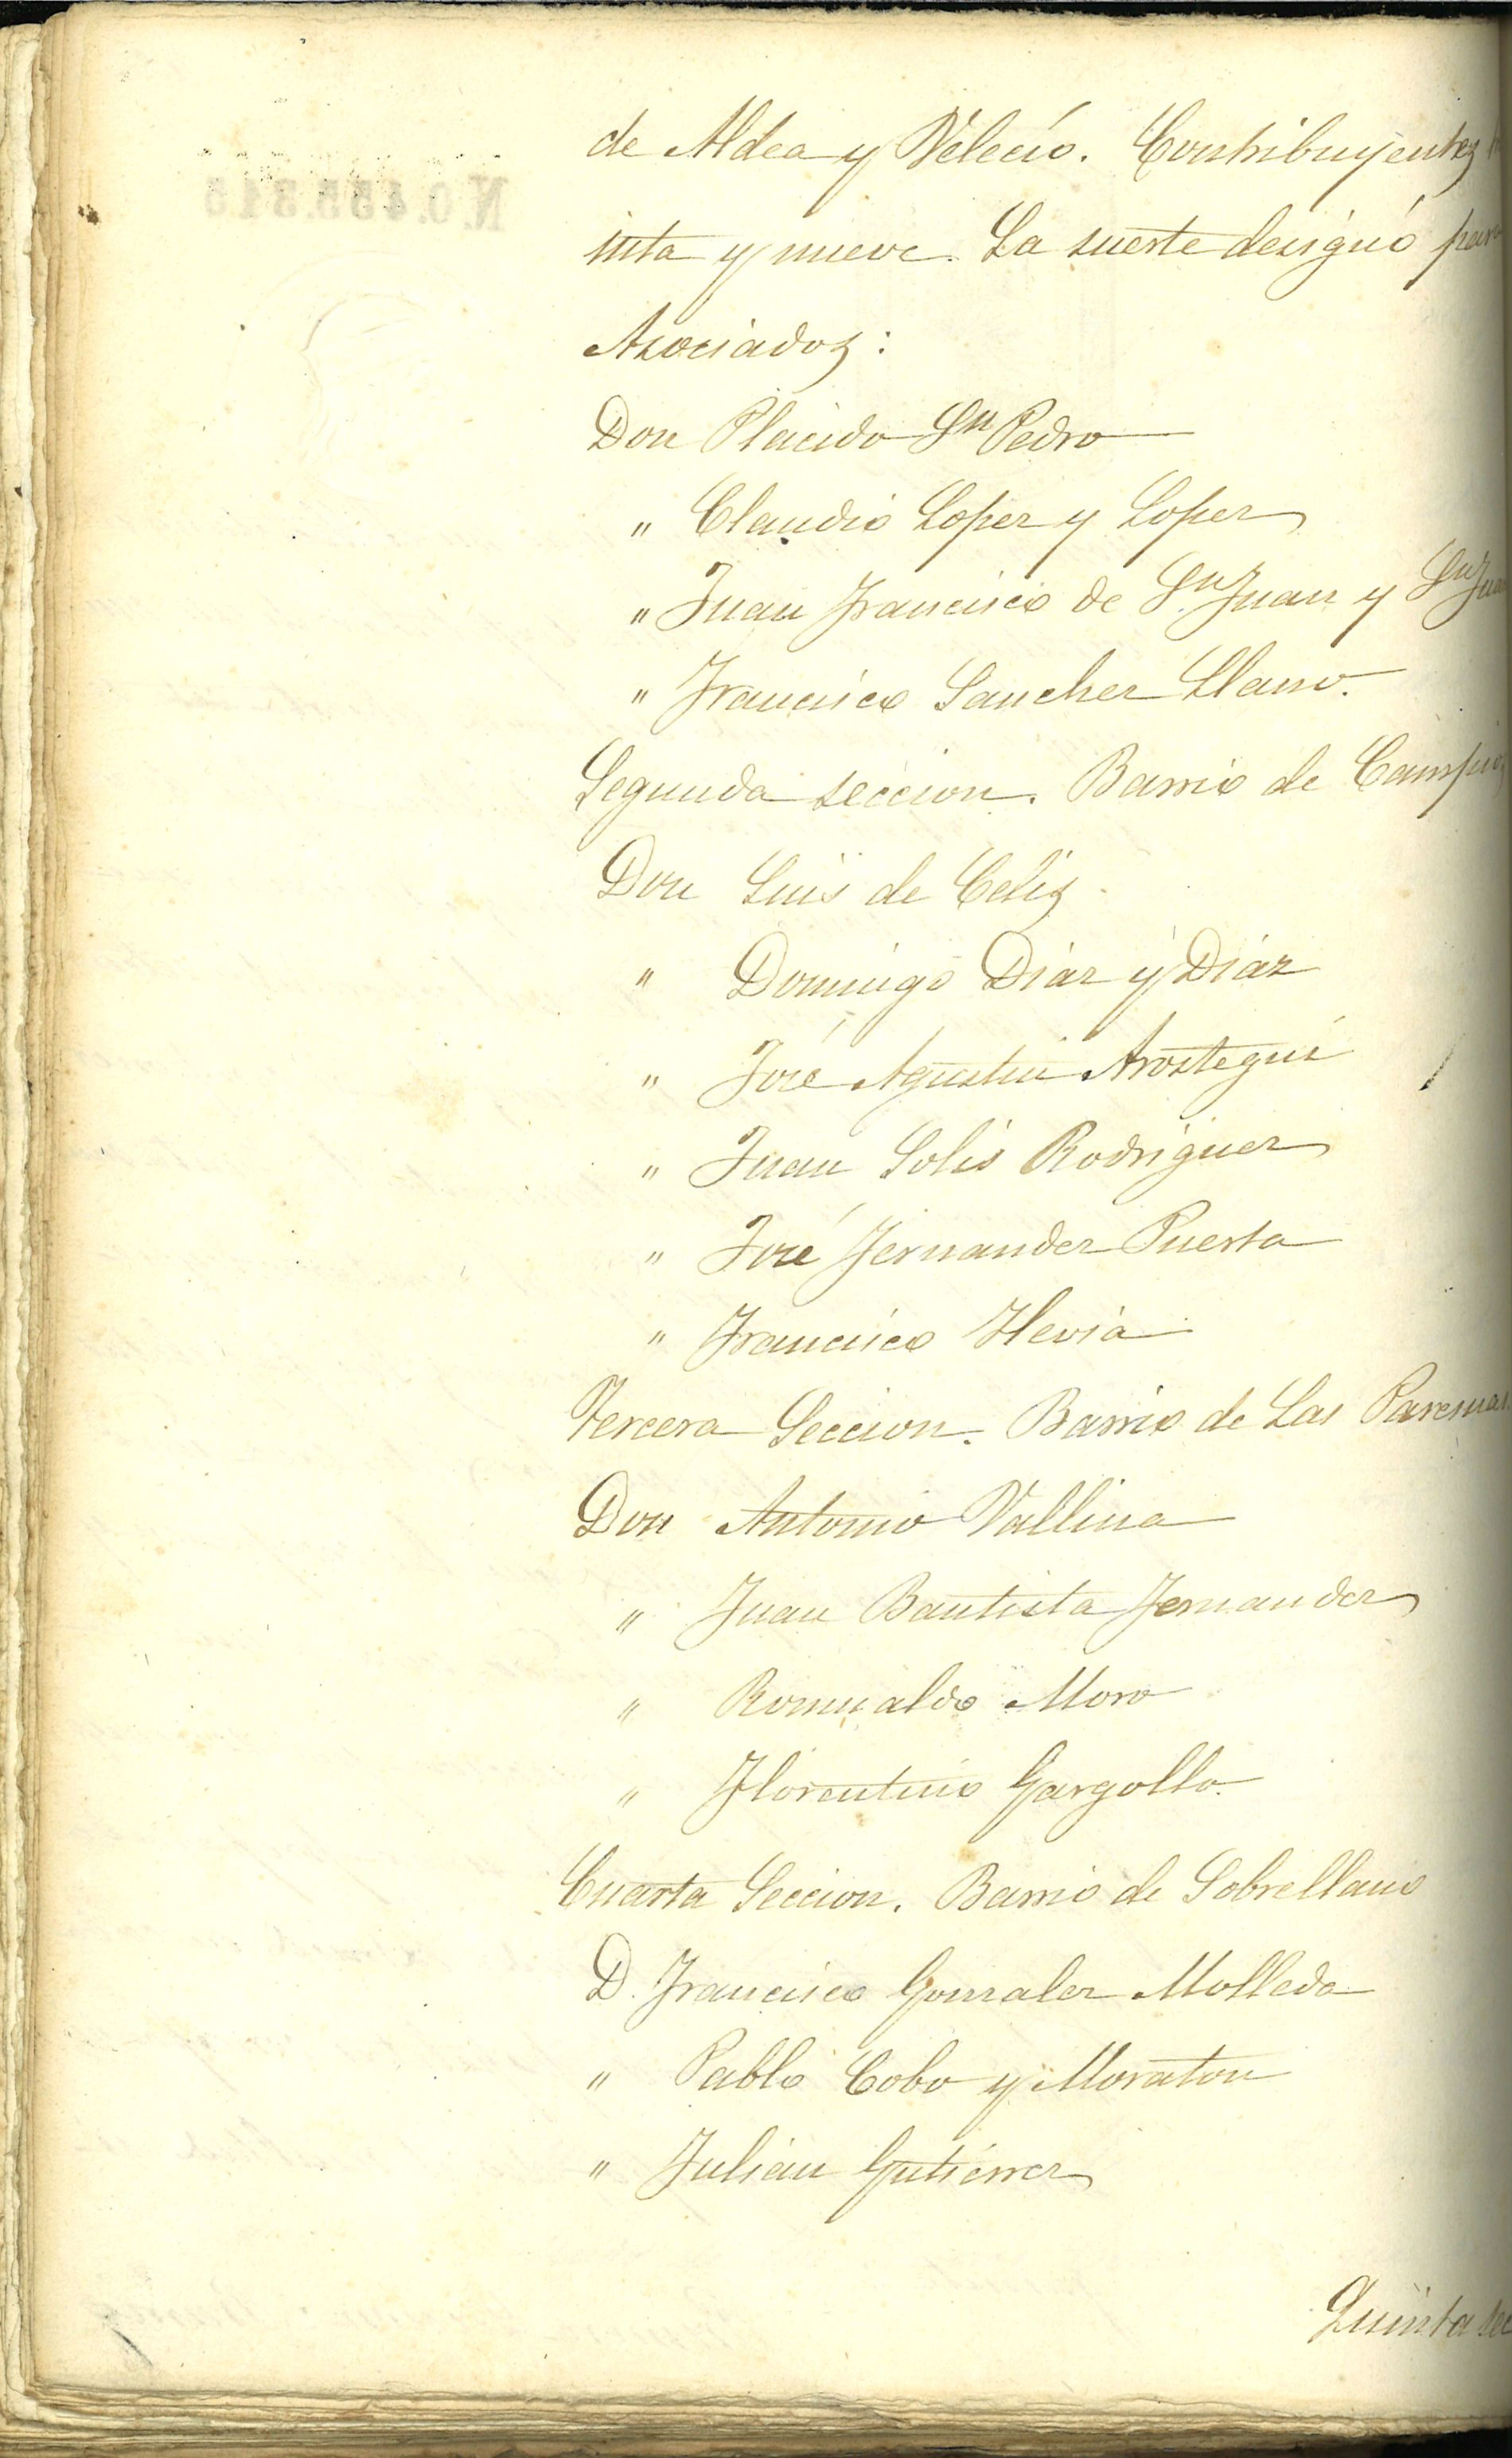 de Aldea y Velecío. Contribuyentes
inta y nueve. La suerte designó para
Asociados:
Don Placido Sn Pedro
" Claudio Lopez y Lopez
" Juan Francisco de Sn Juan y Sn Juan
" Francisco Sanchez Llano.
Segunda seccion. Barrio de Campios
Don Luis de Celis
" Domingo Diaz y Diaz
" José Agustin Arostegui
" Juan Solis Rodriguez
" José Fernandez Puerta
" Francisco Hevia
Tercera Seccion. Barrio de Las
Don Antonio Vallina
" Juan Bautista Fernandez
" Romualdo Moro
" Florentino Gargollo.
Cuarta Seccion. Barrio de Sobrellano
D. Francisco Gonzalez Molleda
" Pablo Cobo y Moraton
" Julian Gutiérrez
Quinta sec